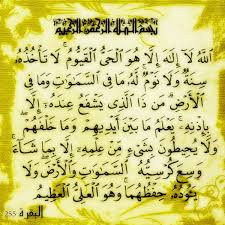 بسم الله الرحمن الرحيم
اللَّهُ لَا إِلَهَ إِلَّا هُوَ الْحَيُّ الْقَيُّومُ لَا تَأْخُذُهُ
سِنَةٌ وَلَا نَوْمٌ لَهُ مَا فِي السَّمَاوَاتِ وَمَا فِي
الْأَرْضِ مَنْ ذَا الَّذِي يَشْفَعُ عِنْدَهُ إِلَّا
بِإِذْنِهِ يَعْلَمُ مَا بَيْنَ أَيْدِيهِمْ وَمَا خَلْفَهُمْ
وَلَا يُحِيطُونَ بِشَيْءٍ مِنْ عِلْمِهِ إِلَّا بِمَا شَاءَ
وَسِعَ كُرْسِيُّهُ السَّمَاوَاتِ وَالْأَرْضَ وَلَا
يَئُودُهُ حِفْظُهُمَا وَهُوَ الْعَلِيُّ الْعَظِيمُ
البقرة 255